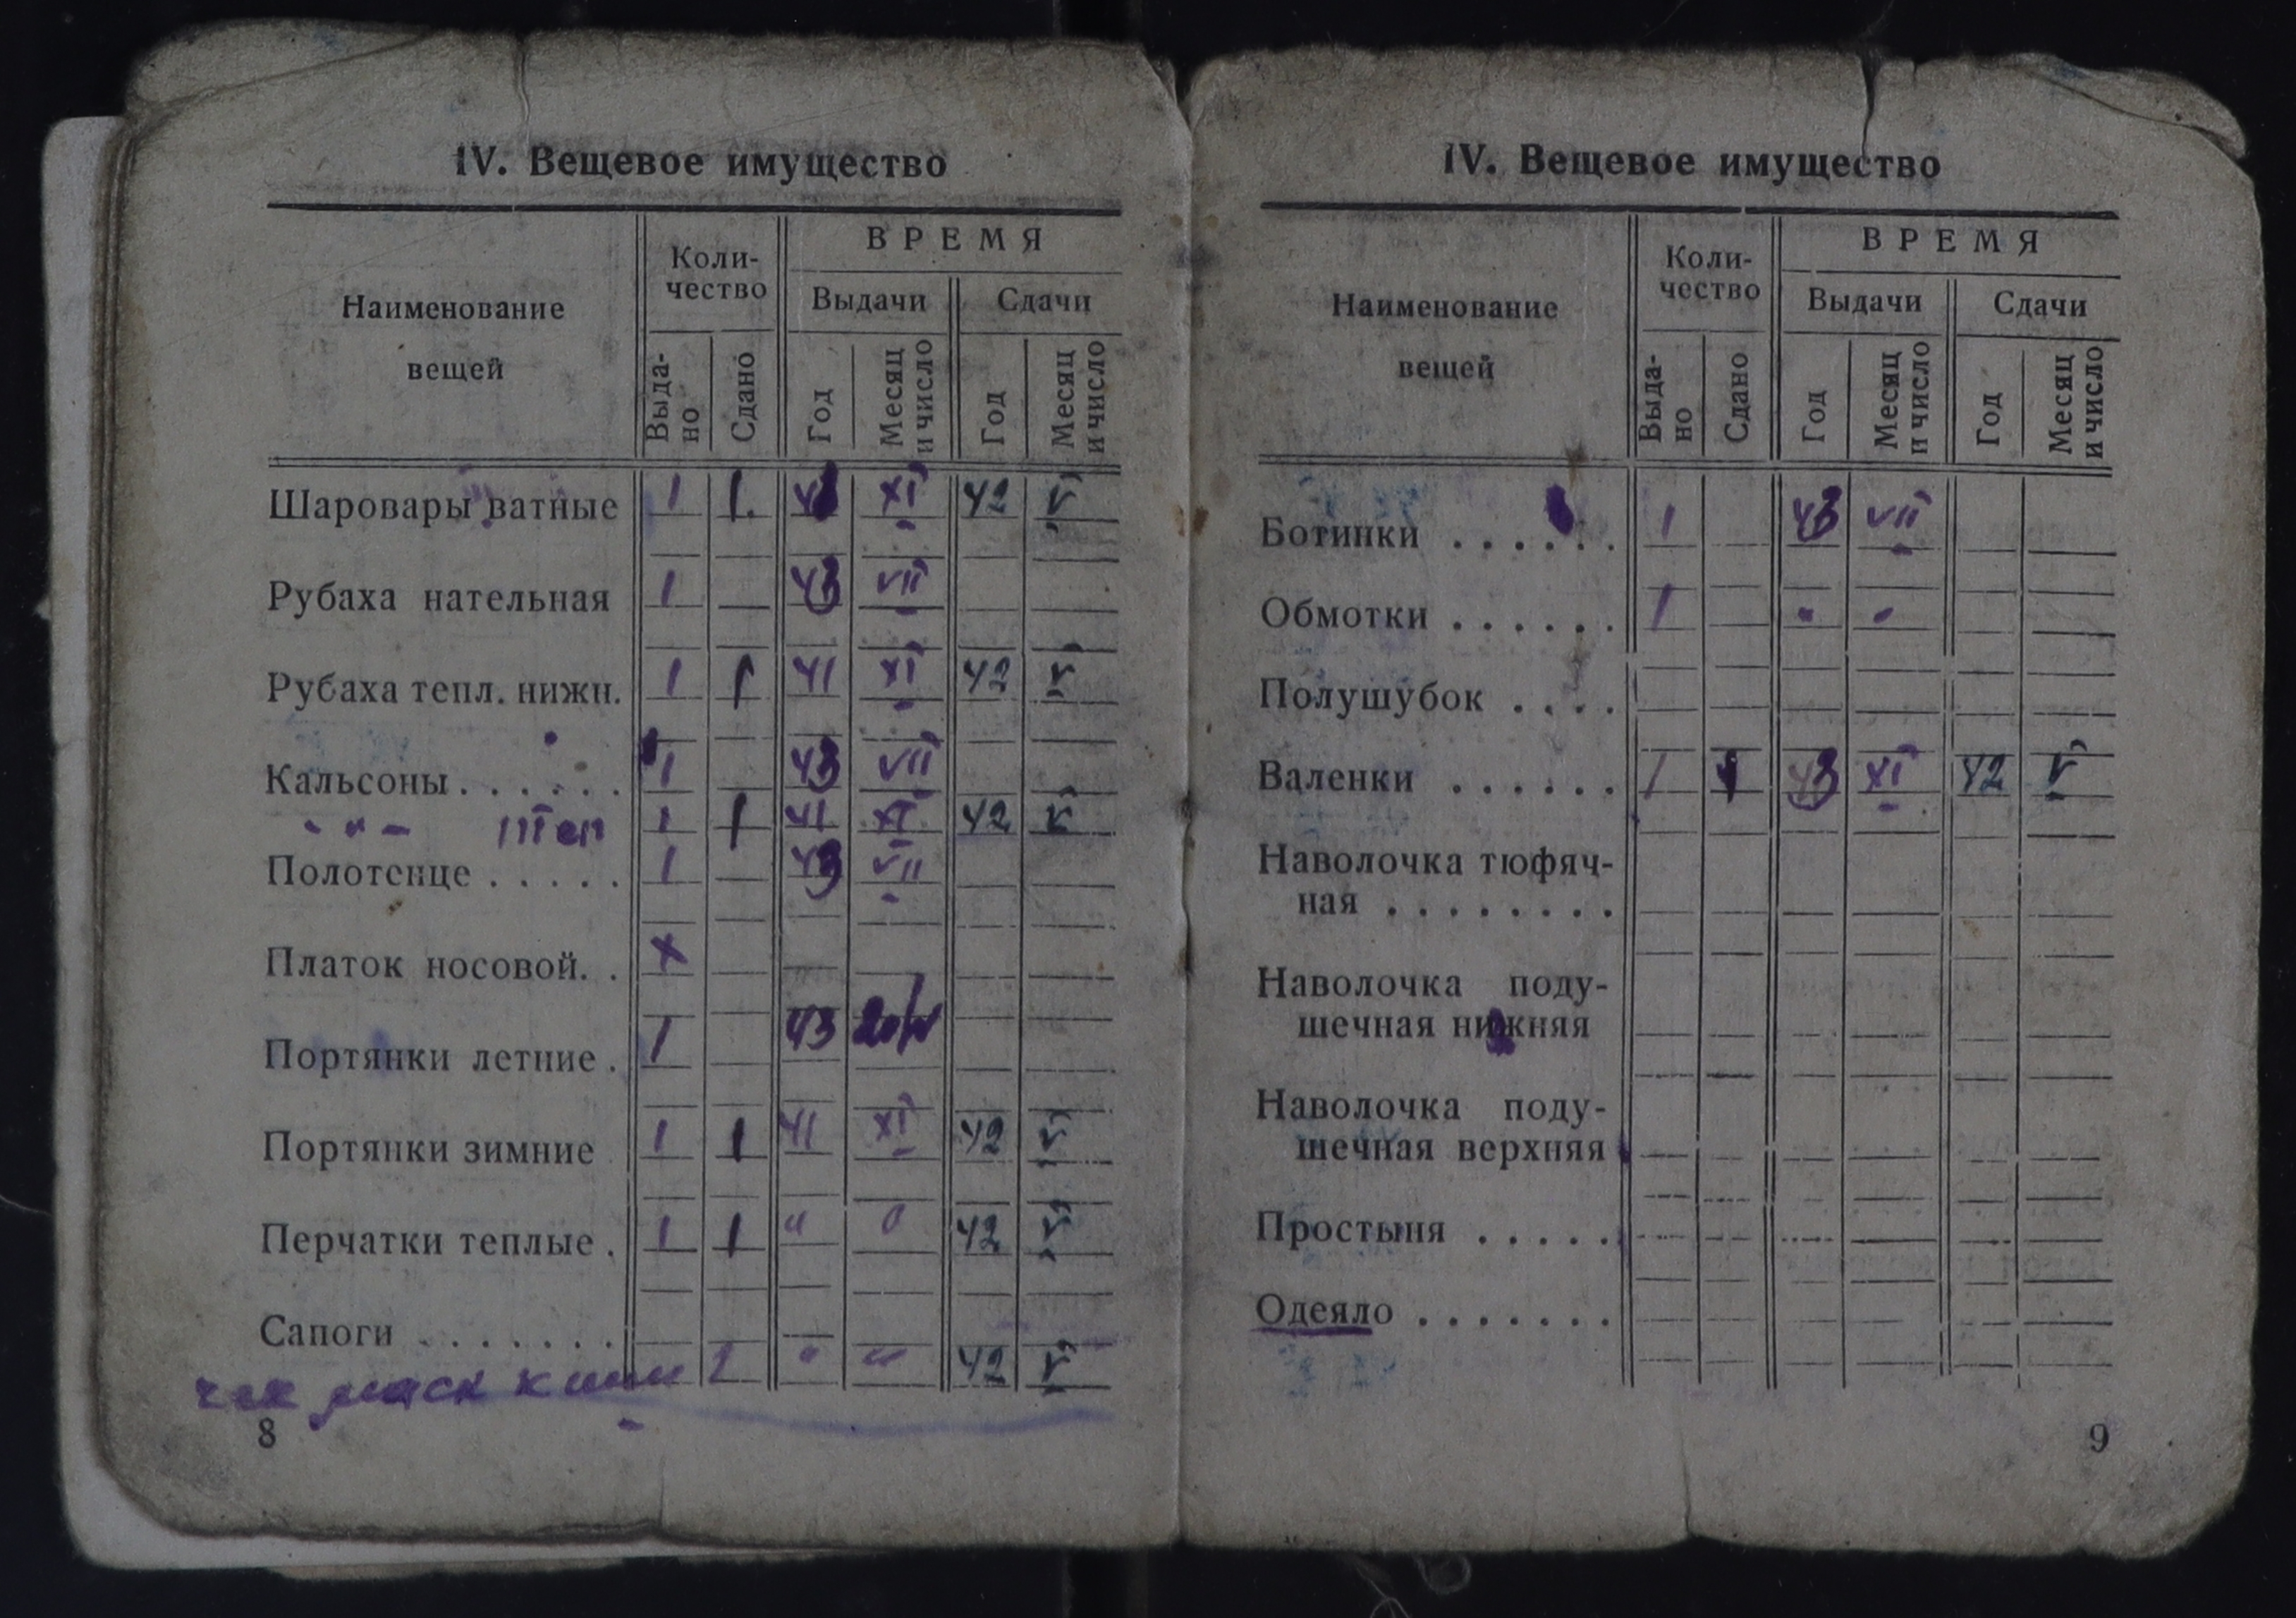 IV. Вещевое имущество
Наименование вещей
Коли-
чество
ВРЕМЯ
Выдачи
Сдачи
Выда-
но
Сдано
Год
Месяц
и число
Год
Месяц
и число
Шаровары ватные 1 1 XI 42 V
Рубаха нательная 1 43 VII
Рубаха тепл. нижн. 1 1 41 XI 42 V
Кальсоны . . . . . . 1 43 VII
- " - 1 1 41 XI 42 V
Полотенце . . . . . 1 43 VII
Платок носовой. . х
Портянки летние . 1 43
Портянки зимние 1 1 41 XI 42 V
Перчатки теплые . 1 1 " " 42 V
Сапоги . . . . . . .
" " 42 V
8
IV. Вещевое имущество
Наименование вещей
Коли-
чество
ВРЕМЯ
Выдачи
Сдачи
Выда-
но
Сдано
Год
Месяц
и число
Год
Месяц
и число
Ботинки . . . . . . 1 43 VII
Обмотки . . . . . . 1 " "
Полушубок . . . .
Валенки . . . . . . 1 1 43 XI 42 V
Наволочка тюфяч-
ная . . . . . . . .
Наволочка поду-
шечная нижняя
Наволочка поду-
шечная верхняя
Простыня . . . . .
Одеяло . . . . . . .
9